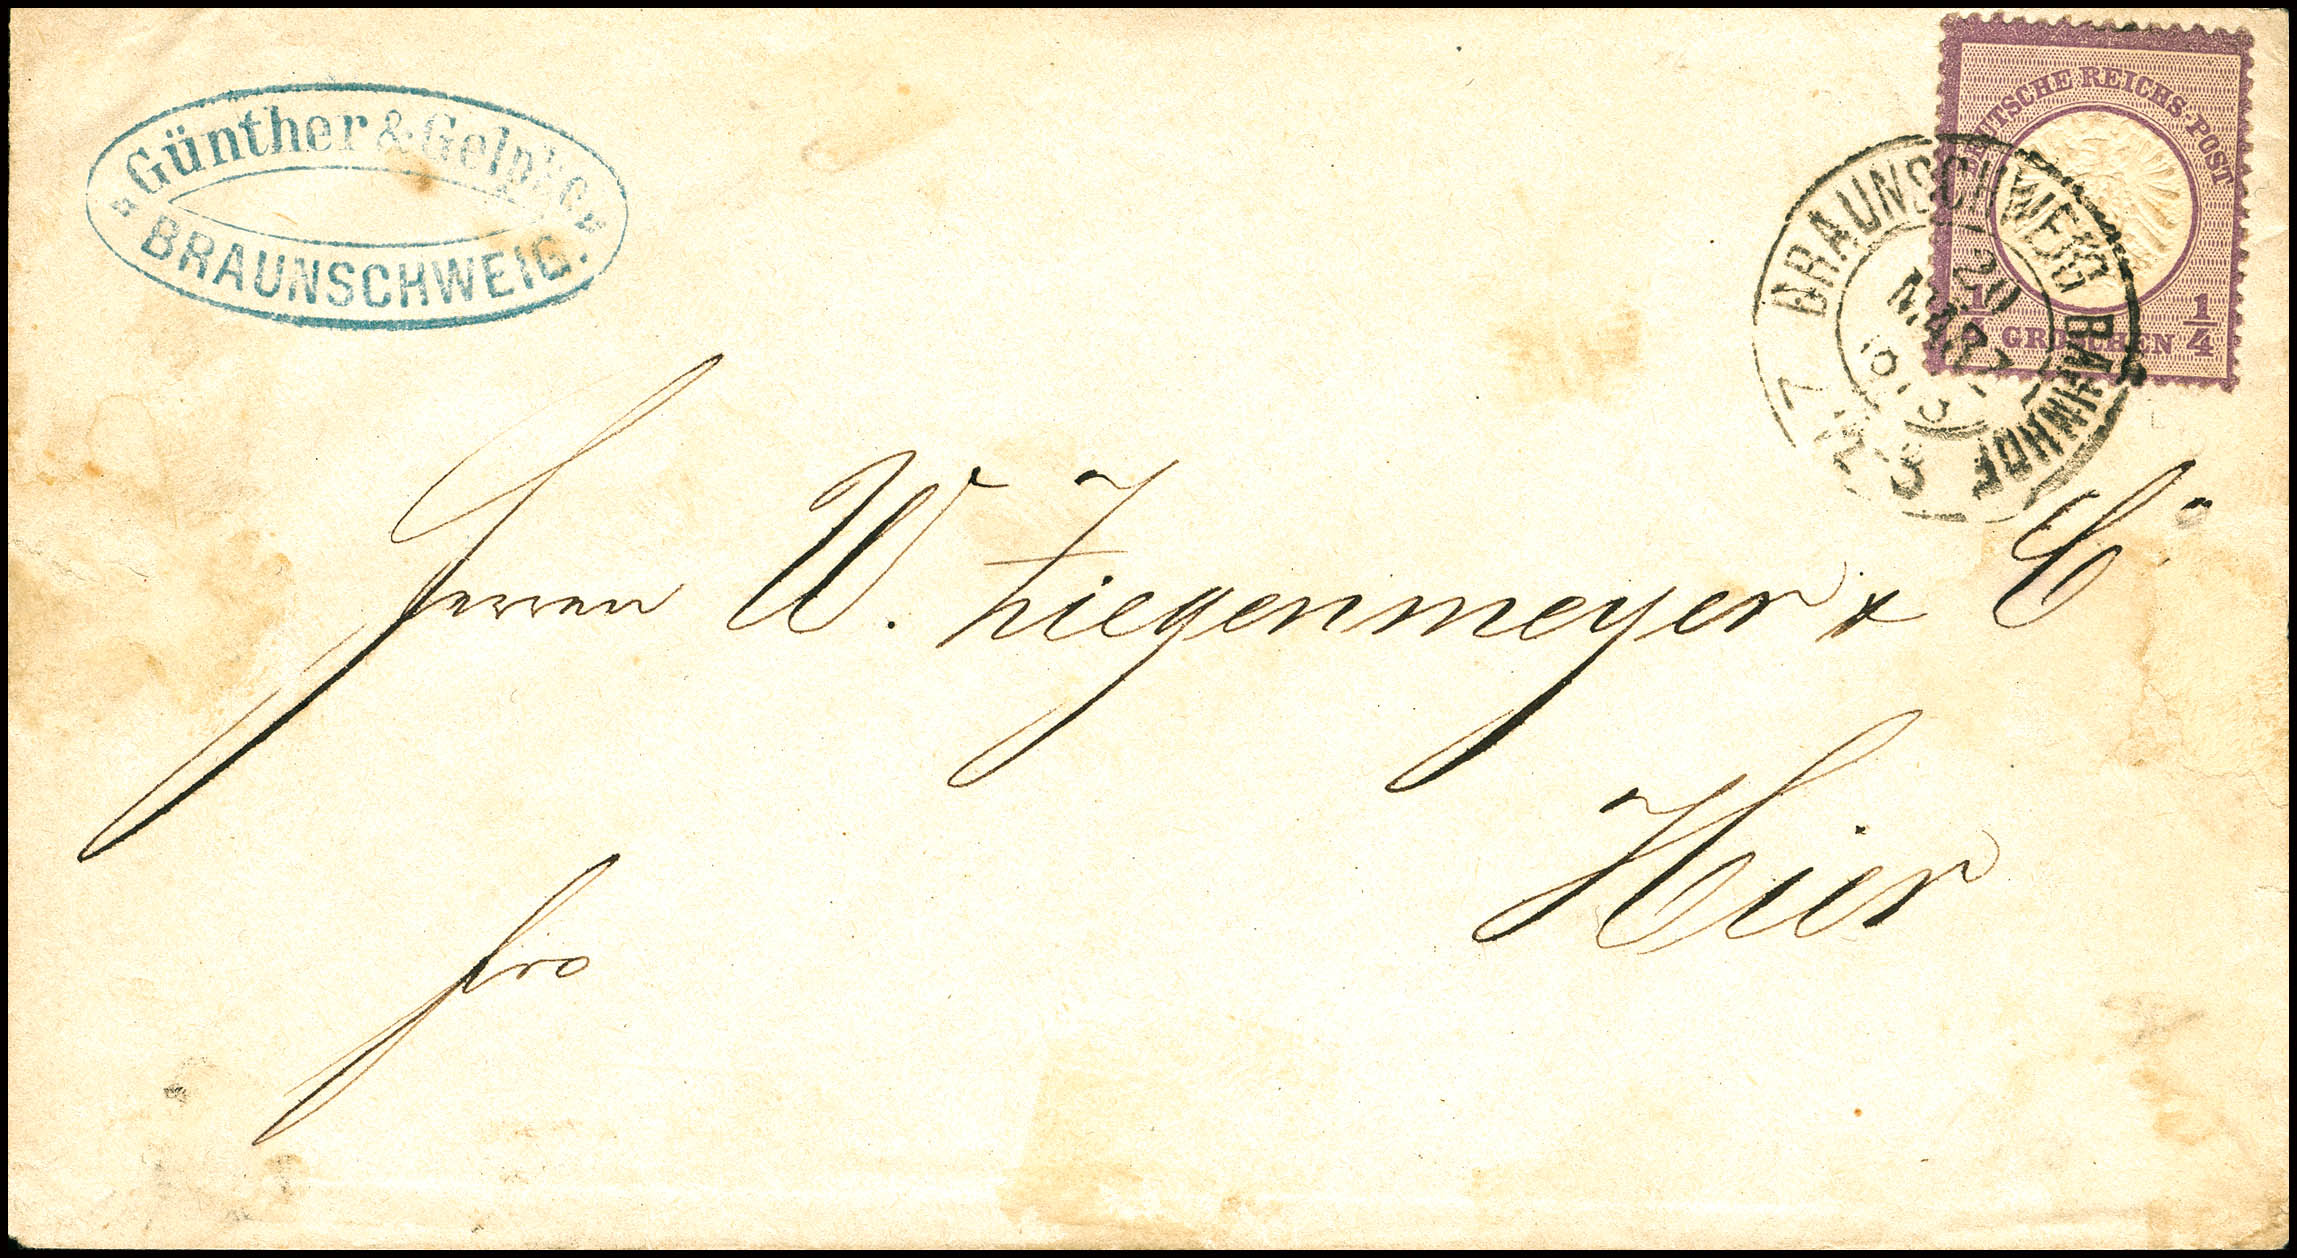 Günther & Gelpke
BRAUNSCHWEIG.
DEUTSCHE REICHS-POST
1/4 GROSCHEN 1/4
BRAUNSCHWEIG BAHNHOF
20
MÄRZ
Herren W. Ziegenmeyer & Co
Hier
fro